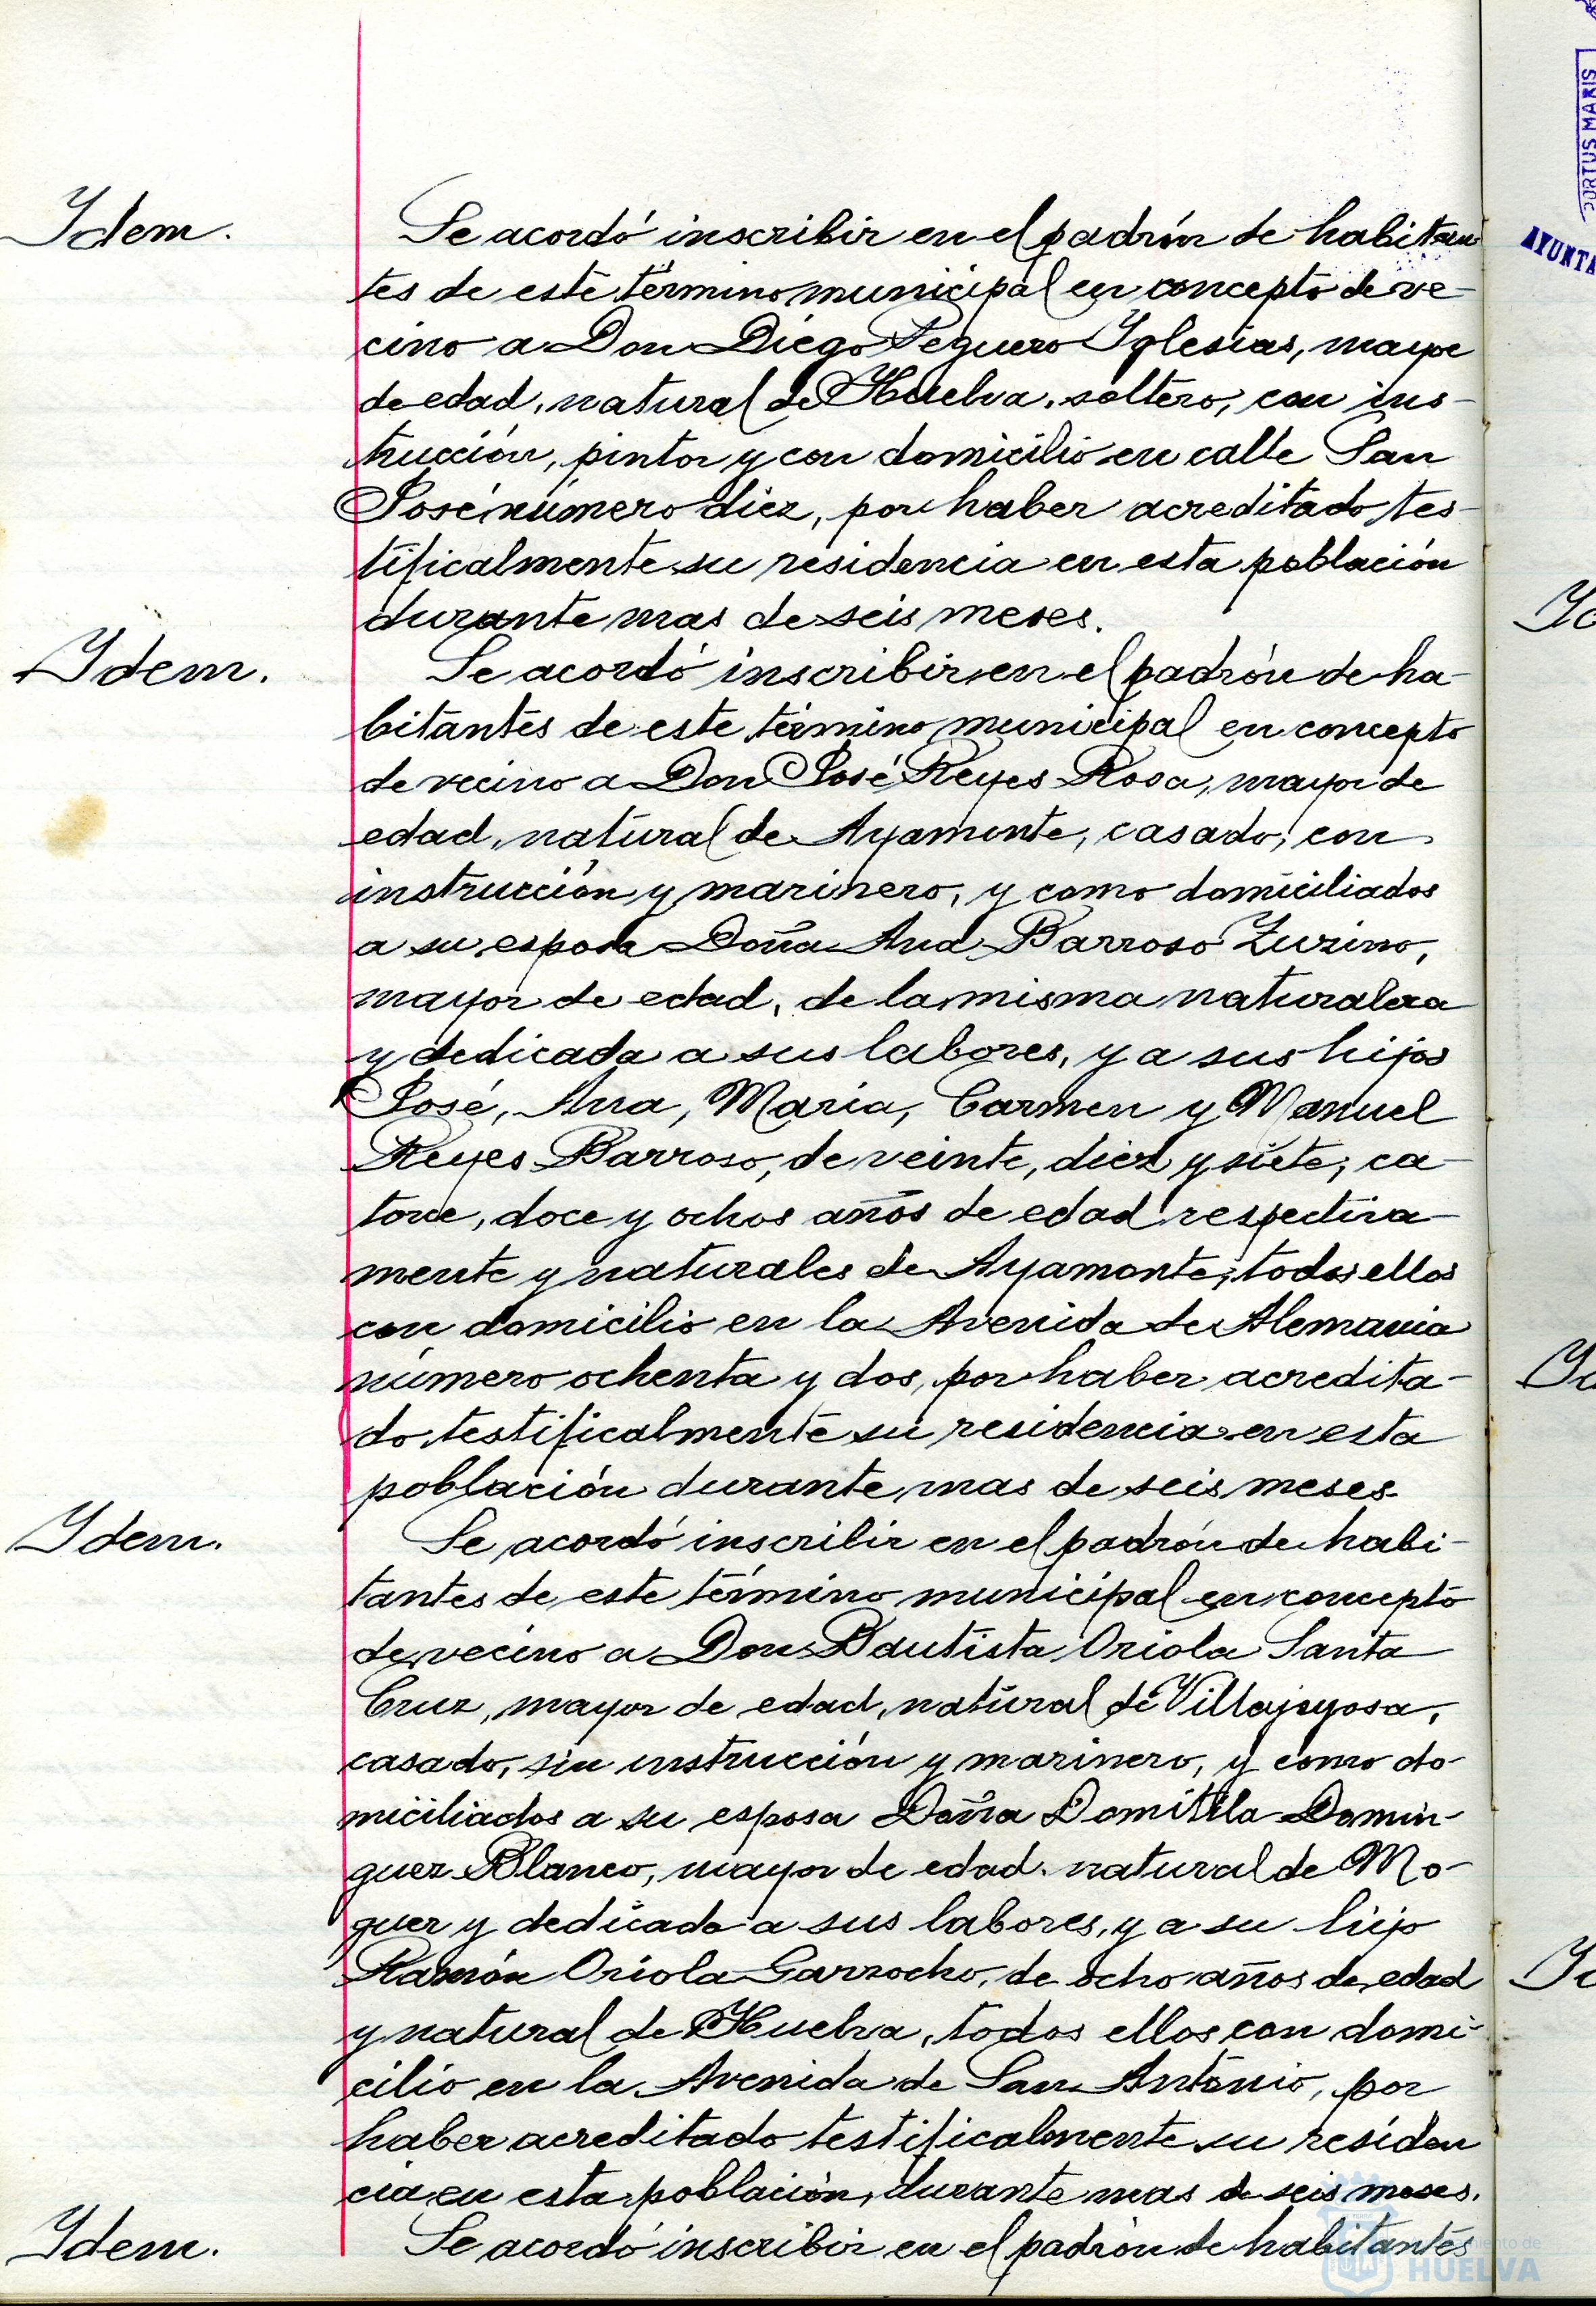 Idem.
Se acordó inscribir en el padrón de habitan
tes de este término municipal en concepto de ve-
cino a Don Diego Peguero Iglesias, mayor
de edad, natural de Huelva, soltero, con ins-
trucción, pintor y con domicilio en calle San
José número diez, por haber acreditado tes-
tificalmente su residencia en esta población
durante mas de seis meses.
Idem.
Se acordó inscribir en el padrón de ha-
bitantes de este término municipal en concepto
de vecino a Don José Reyes Rosa, mayor de
edad, natural de Ayamonte, casado, con
instrucción y marinero, y como domiciliados
a su esposa Doña Ana Barroso Zurino,
mayor de edad, de la misma naturaleza
y dedicada a sus labores, y a sus hijos
José, Ana, María, Carmen y Manuel
Reyes Barroso, de veinte, diez y siete, ca-
torce, doce y ochos años de edad respectiva-
mente y naturales de Ayamonte, todos ellos
con domicilio en la Avenida de Alemania
número ochenta y dos, por haber acredita-
do testificalmente su residencia en esta
población durante mas de seis meses.
Idem.
Se acordó inscribir en el padrón de habi-
tantes de este término municipal en concepto
de vecino a Don Bautista Oriola Santa
Cruz, mayor de edad, natural de Villajoyosa,
casado, sin instrucción y marinero, y como do-
miciliados a su esposa Doña Domitila Domin-
guez Blanco, mayor de edad, natural de Mo-
guer y dedicada a sus labores, y a su hijo
Ramón Oriola Garrocho, de ocho años de edad
y natural de Huelva, todos ellos con domi-
cilio en la Avenida de San Antonio, por
haber acreditado testificalmente su residen
cia en esta población, durante mas de seis meses.
Idem.
Se acordó inscribir en el padrón de habitantes
PORTUS MARIS
AYUNTA
HUELVA